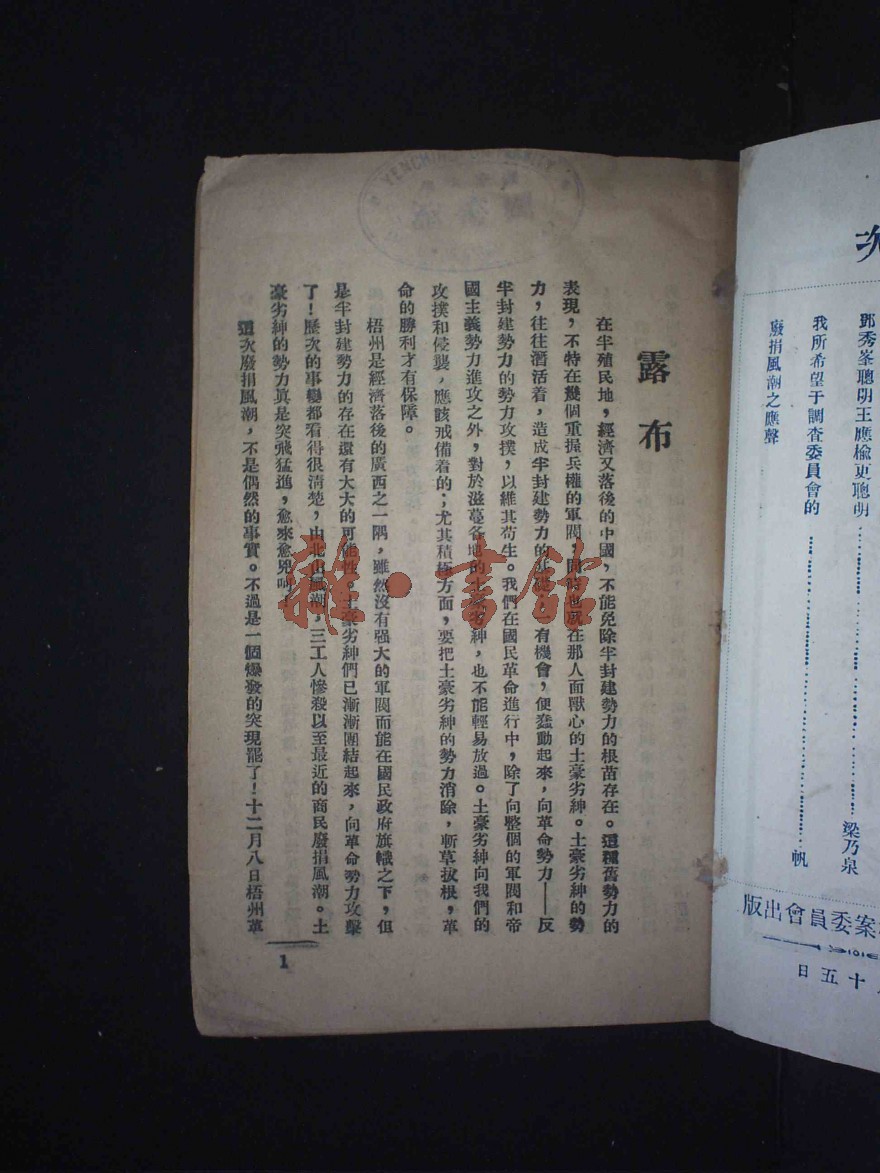 次
鄧秀峯聰明王應榆更聰明
梁乃泉
我所希望于調查委員會的
帆
廢捐風潮之應聲
案委員會出版
十五日
YENCHING UNIVERSITY
露布
在半殖民地，經濟又落後的中國，不能免除半封建勢力的根苗存在。這種舊勢力的
表現，不特在幾個重握兵權的軍閥，同時也就在那人面獸心的土豪劣紳。土豪劣紳的勢
力，往往潛活着，造成半封建勢力的基礎，有機會，便蠢動起來，向革命勢力——反
半封建勢力的勢力攻撲，以維其苟生。我們在國民革命進行中，除了向整個的軍閥和帝
國主義勢力進攻之外，對於滋蔓各地的土豪劣紳，也不能輕易放過。土豪劣紳向我們的
攻撲和侵襲，應該戒備着的；尤其積極方面，要把土豪劣紳的勢力消除，斬草拔根，革
命的勝利才有保障。
梧州是經濟落後的廣西之一隅，雖然沒有强大的軍閥而能在國民政府旗幟之下，但
是半封建勢力的存在還有大大的可能性。土豪劣紳們已漸漸團結起來，向革命勢力攻擊
了！歷次的事變都看得很清楚，由北山風潮，三工人慘殺以至最近的商民廢捐風潮。土
豪劣紳的勢力眞是突飛猛進，愈來愈兇呵！
這次廢捐風潮，不是偶然的事實。不過是一個爆發的突現罷了！十二月八日梧州革
1
雜·書館